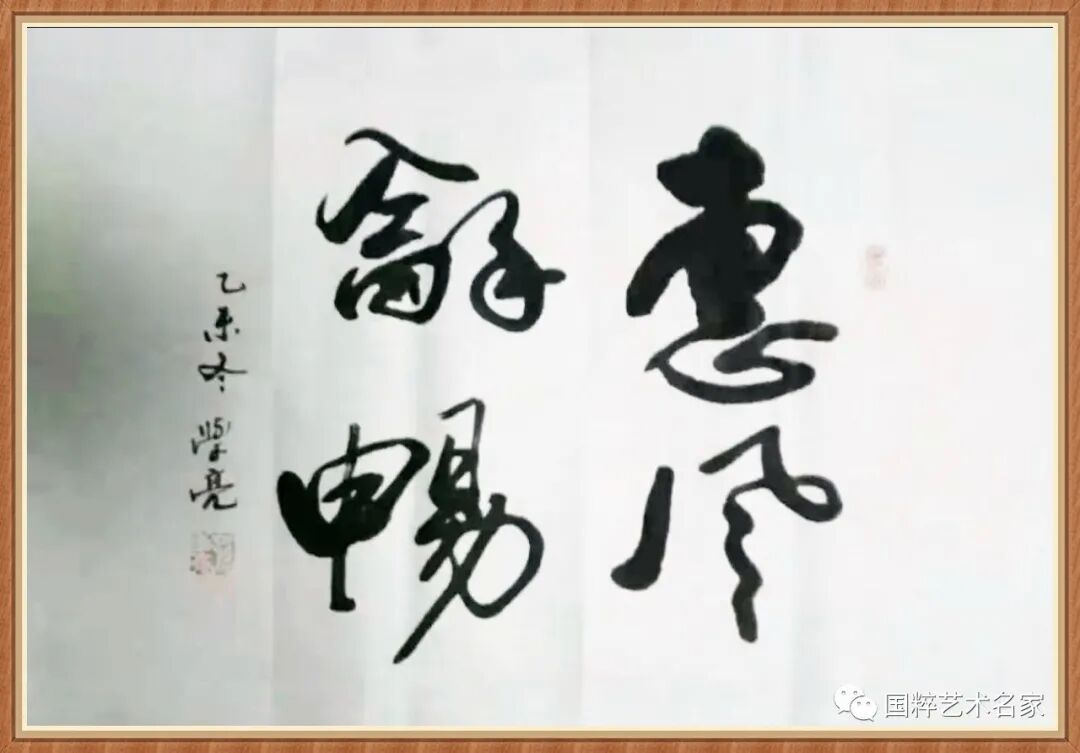 惠风
龢畅
乙未冬 学亮
国粹艺术名家